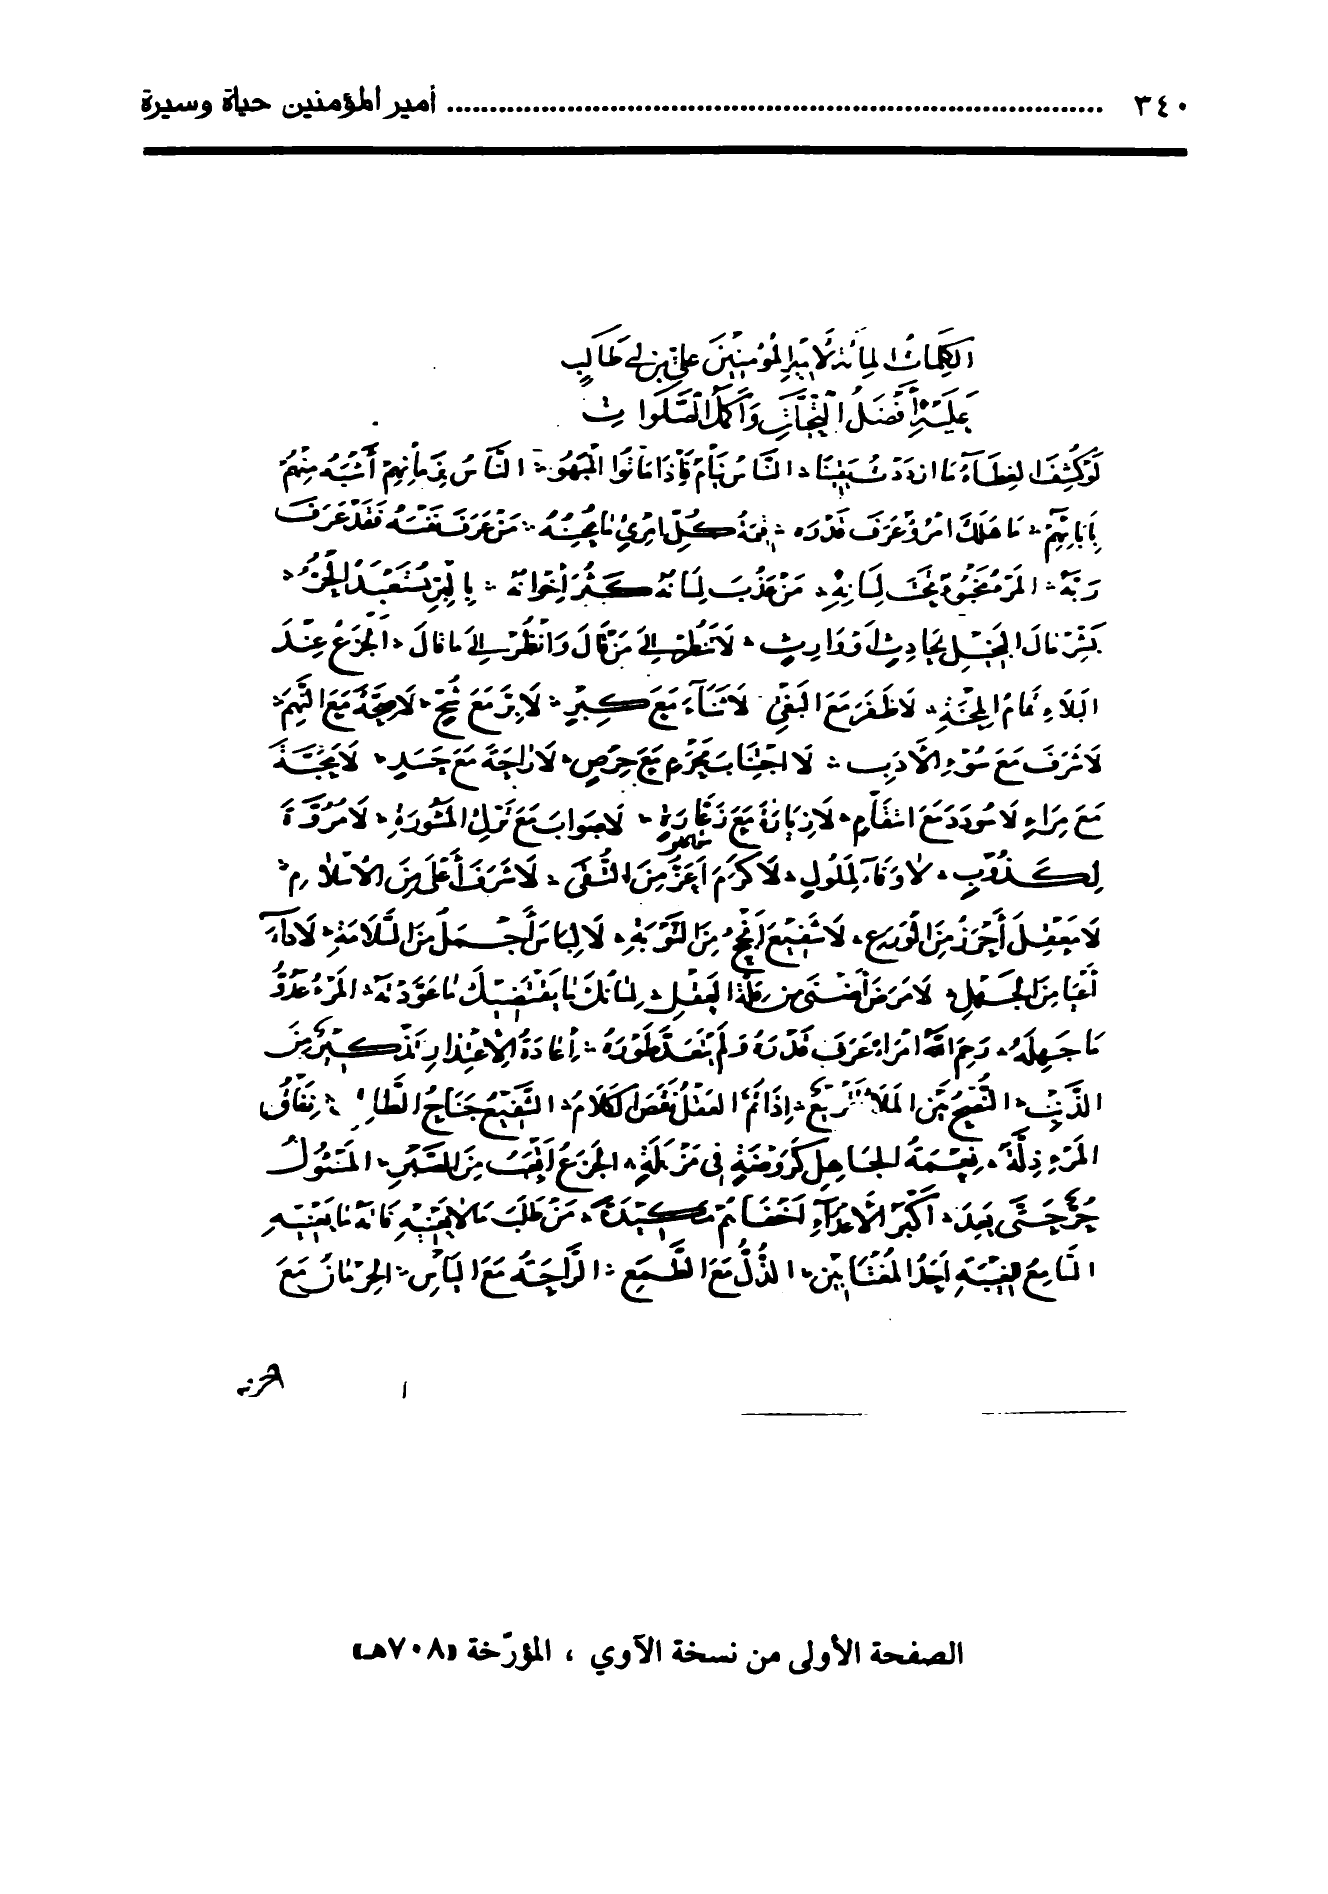 ٣٤٠ ........ أمير المؤمنين حياة وسيرة
الكلمات المائة لأمير المؤمنين علي بن أبي طالب
عليه أفضل التحيات وأكمل الصلوات
لَو كُشِفَ الغِطَاءُ مَا ازددتُ يَقِينًا ∴ النَّاسُ نِيَامٌ فَإِذَا مَاتُوا انْتَبَهُوا ∴ النَّاسُ بِزَمَانِهِم أَشْبَهُ مِنْهُم
بِآبَائِهِم ∴ مَا هَلَكَ امْرُؤٌ عَرَفَ قَدْرَه ∴ قِيمَةُ كُلِّ امْرِئٍ مَا يُحْسِنُهُ ∴ مَنْ عَرَفَ نَفْسَهُ فَقَدْ عَرَفَ
رَبَّهُ ∴ المَرْءُ مَخْبُوءٌ تَحْتَ لِسَانِهِ ∴ مَنْ عَذُبَ لِسَانُهُ كَثُرَ إِخْوَانُهُ ∴ بِالبِرِّ يُسْتَعْبَدُ الحُرُّ ∴
بَشِّرْ مَالَ البَخِيلِ بِحَادِثٍ أَوْ وَارِثٍ ∴ لَا تَنْظُرْ إِلَى مَنْ قَالَ وَانْظُرْ إِلَى مَا قَالَ ∴ الجَزَعُ عِنْدَ
البَلَاءِ تَمَامُ المِحْنَةِ ∴ لَا ظَفَرَ مَعَ البَغْيِ ∴ لَا ثَنَاءَ مَعَ كِبْرٍ ∴ لَا بِرَّ مَعَ شُحٍّ ∴ لَا صِحَّةَ مَعَ النَّهَمِ ∴
لَا شَرَفَ مَعَ سُوْءِ الأَدَبِ ∴ لَا اجْتِنَابَ مُحَرَّمٍ مَعَ حِرْصٍ ∴ لَا رَاحَةَ مَعَ حَسَدٍ ∴ لَا مَحَبَّةَ
مَعَ مِرَاءٍ لَا سُودَدَ مَعَ انتقَامٍ ∴ لَا زِيَارَةَ مَعَ زَعَارَةٍ ∴ لَا صَوَابَ مَعَ تَرْكِ المَشُورَةِ ∴ لَا مُرُوَّةَ
لِكَذُوبٍ ∴ لَا وَفَاءَ لِمَلُولٍ ∴ لَا كَرَمَ أَعَزُّ مِنَ التُّقَى ∴ لَا شَرَفَ أَعْلَى مِنَ الإسْلَامِ ∴
لَا مَعْقِلَ أَحْرَزُ مِنَ الوَرَعِ ∴ لَا شَفِيعَ أَنْجَحُ مِنَ التَّوْبَةِ ∴ لَا لِبَاسَ أَجْمَلُ مِنَ السَّلَامَةِ ∴ لَا دَاءَ
أَعْيَا مِنَ الجَهْلِ ∴ لَا مَرَضَ أَضْنَى مِنْ قِلَّةِ العَقْلِ ∴ لِسَانُكَ يَقْتَضِيكَ مَا عَوَّدْتَهُ ∴ المَرْءُ عَدُوُّ
مَا جَهِلَهُ ∴ رَحِمَ اللهُ امْرَأً عَرَفَ قَدْرَهُ وَلَمْ يَتَعَدَّ طَوْرَهُ ∴ إِعَادَةُ الإعْتِذَارِ تَذْكِيرٌ مِنَ
الذَّنْبِ ∴ النُّصْحُ بَيْنَ المَلَأِ تَقْرِيعٌ ∴ إِذَا تَمَّ العَقْلُ نَقَصَ الكَلَامُ ∴ الشَّفِيعُ جَنَاحُ الطَّالِبِ ∴ نِفَاقُ
المَرْءِ ذِلَّةٌ ∴ نِعْمَةُ الجَاهِلِ كَرَوْضَةٍ فِي مَزْبَلَةٍ ∴ الجَزَعُ أَتْعَبُ مِنَ الصَّبْرِ ∴ المَسْئُولُ
حُرٌّ حَتَّى يَعِدَ ∴ أَكْبَرُ الأَعْدَاءِ أَخْفَاهُمْ مَكِيدَةً ∴ مَنْ طَلَبَ مَا لَا يَعْنِيهِ فَاتَهُ مَا يَعْنِيهِ
السَّامِعُ لِلْغِيبَةِ أَحَدُ المُغْتَابِيْنَ ∴ الذُّلُّ مَعَ الطَّمَعِ ∴ الرَّاحَةُ مَعَ اليَأْسِ ∴ الحِرْمَانُ مَعَ
الصفحة الأولى من نسخة الآوي ، المؤرّخة (٧٠٨هـ)